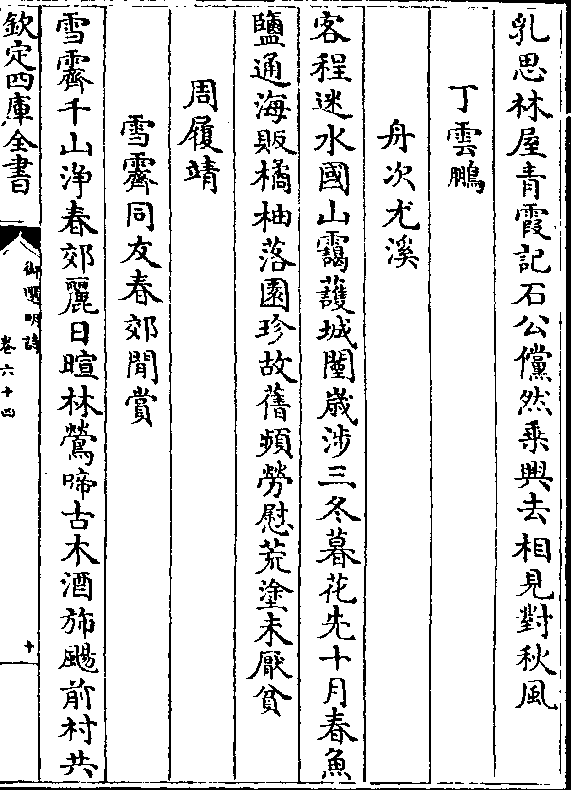 乳思林屋青霞記石公儻然乘興去相見對秋風
丁雲鵬
舟次尤溪
客程迷水國山靄護城闉歲涉三冬暮花先十月春魚
鹽通海販橘柚落園珍故舊頻勞慰荒塗未厭貧
周履靖
雪霽同友春郊閒賞
雪霽千山淨春郊麗日暄林鶯啼古木酒斾颺前村共
欽定四庫全書
御選明詩
卷六十四
十